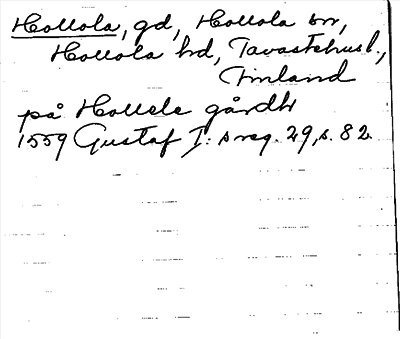 Hollola, gd, Hollola sn,
Hollola hd, Tavastehus l.,
Finland
på Hollele gårdh
1559 Gustaf I: s reg. 29, s. 82.